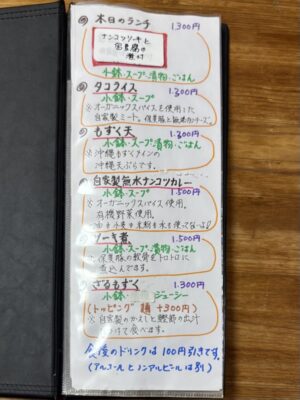 本日のランチ 1.300円
ナンコツソーキと
島豆腐の
煮付
小鉢・スープ・漬物・ごはん
タコライス 1.300円
小鉢・スープ
※オーガニックスパイスを使用した
自家製ミート。
もずく天 1.300円
小鉢・スープ・漬物・ごはん
※沖縄もずくメインの
沖縄天ぷらです。
自家製無水ナンコツカレー
小鉢・スープ 1.500円
※オーガニックスパイス使用。
有機野菜使用。
ソーキ煮 1.500円
小鉢・スープ・漬物・ごはん
※県産豚の軟骨をトロトロに
煮込んでます。
ざるもずく 1.300円
小鉢 ジューシー
(トッピング 鶏 +300円)
※自家製のかえしと鰹節の出汁
つけて食べます。
食後のドリンクは100円引きです。
(アルコールとノンアルビールは別)